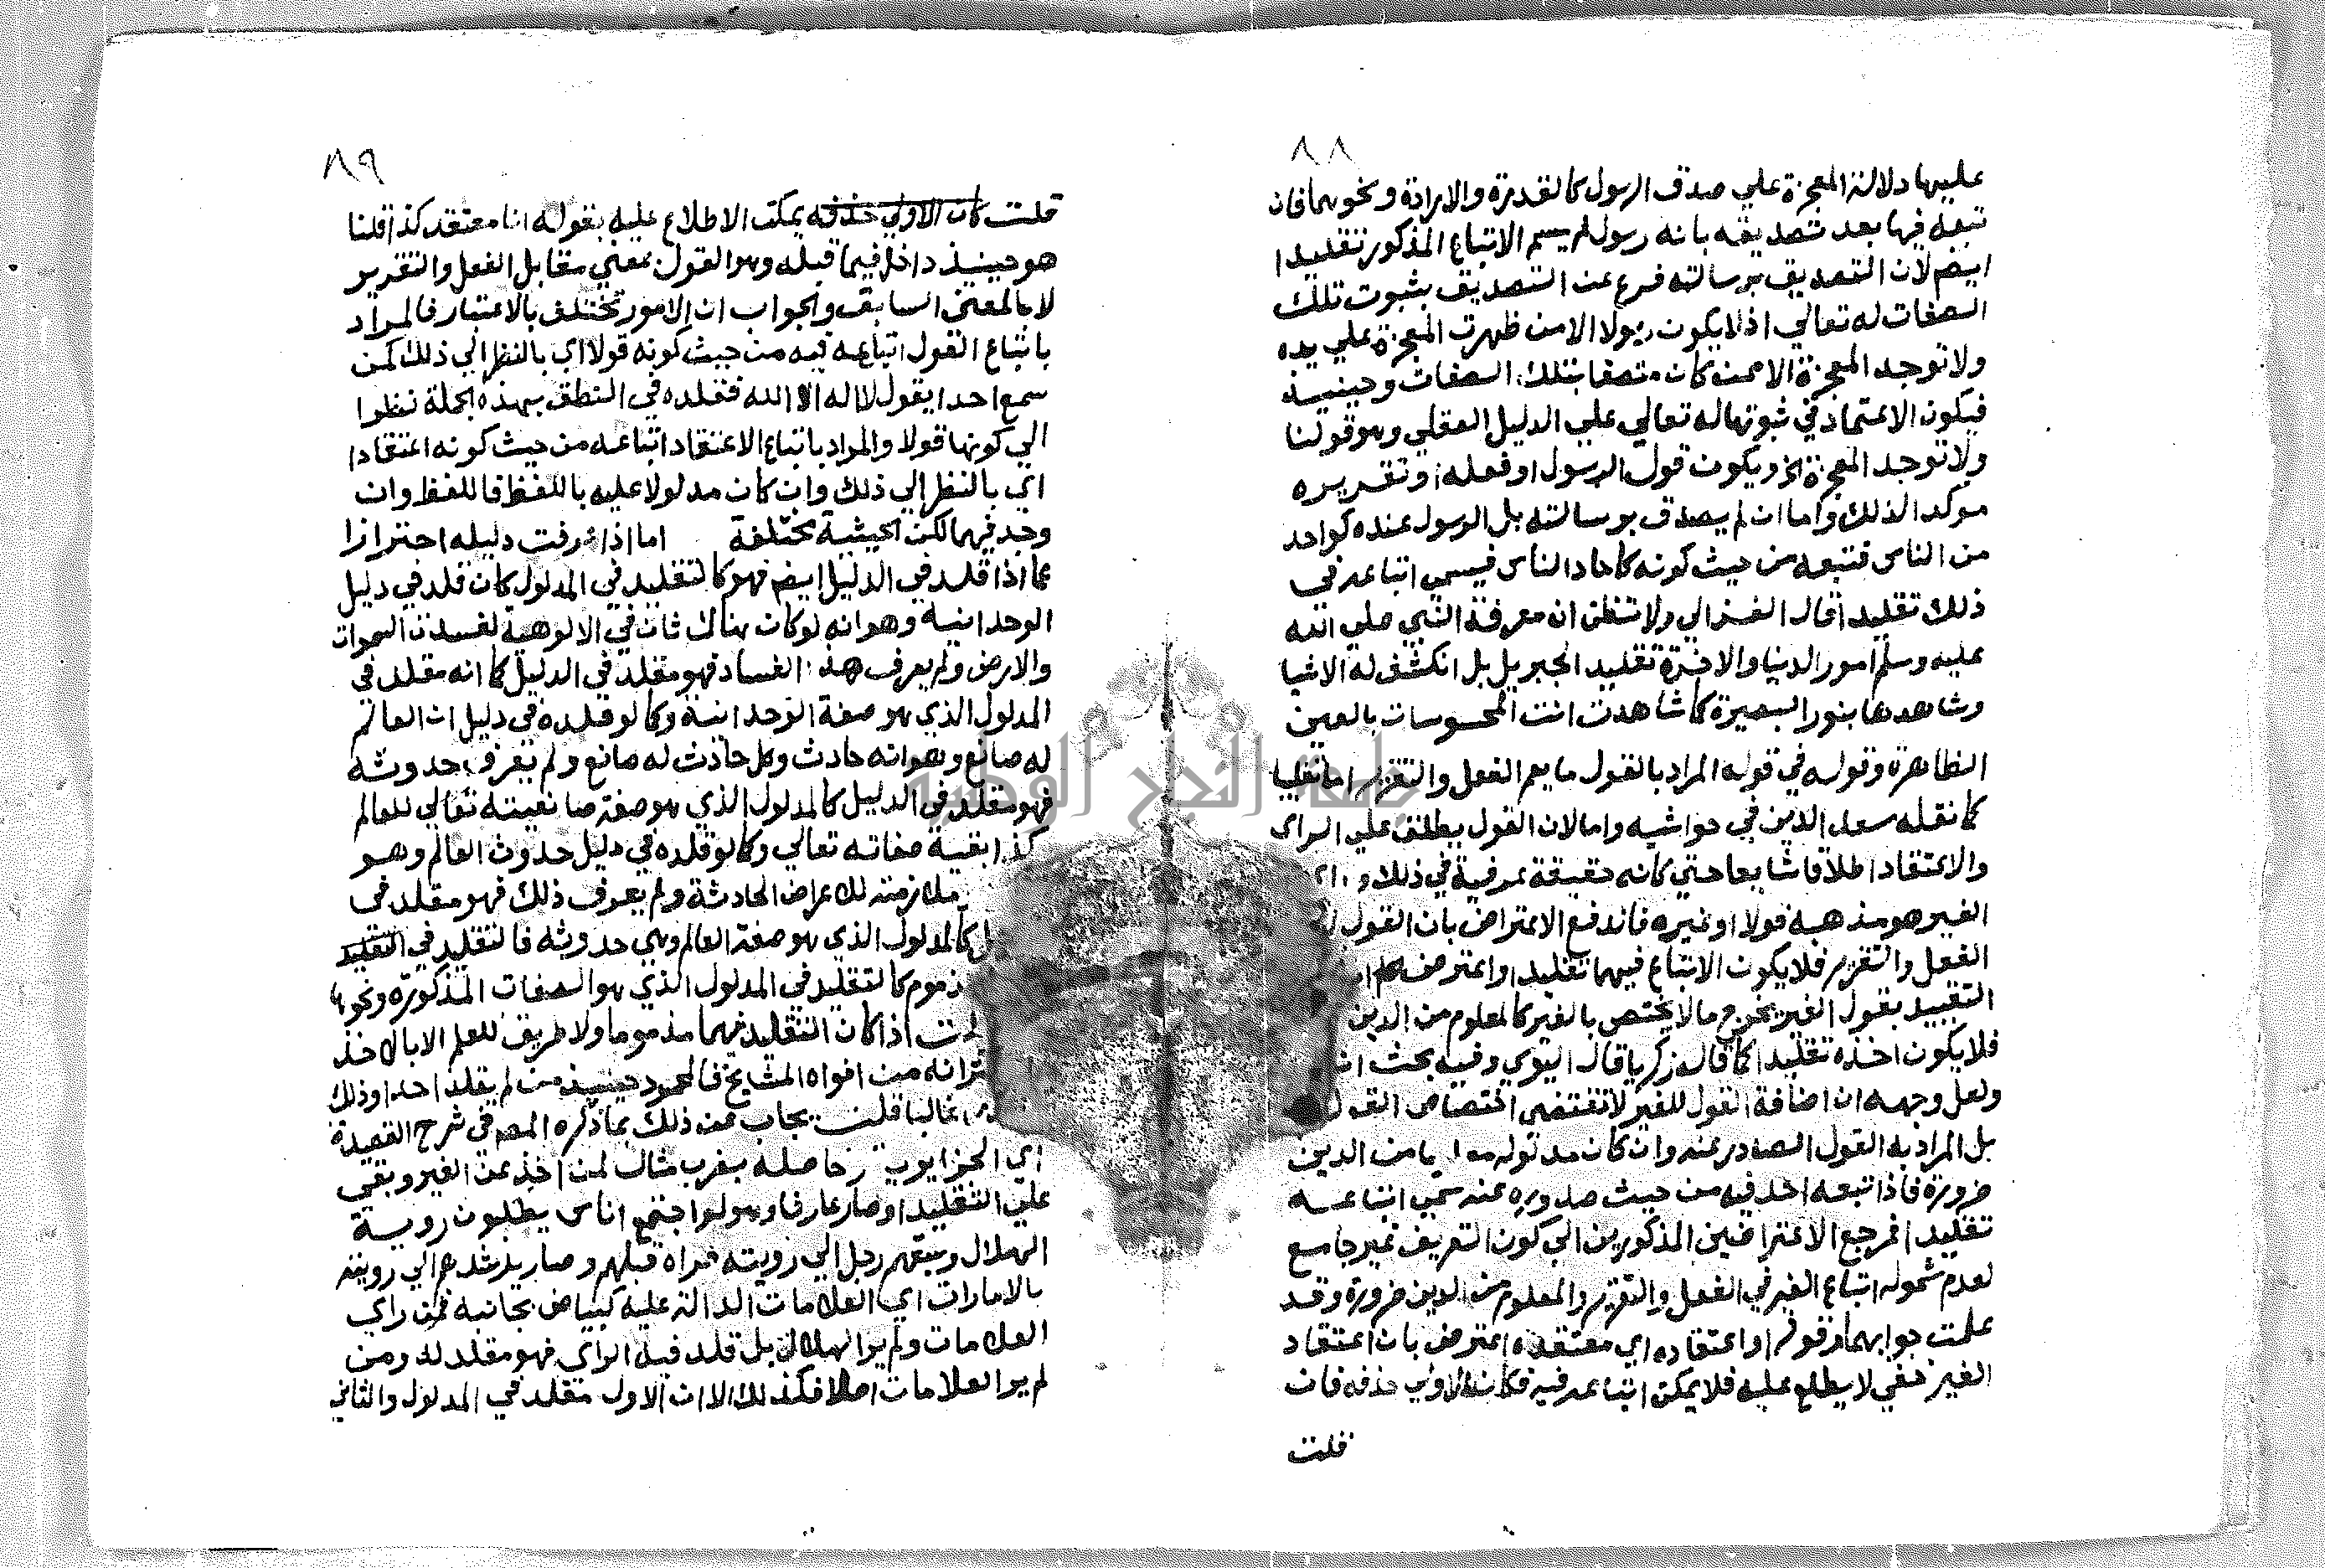 ٨٨
عليها دلالة المعجزة علي صدق الرسول كالقدرة والارادة ونحوهما فان
تبعه فيها بعد تصديقه بانه رسول لم يسم الاتباع المذكور تقليدا
ايضم لان التصديق برسالته فرع عن التصديق بثبوت تلك
الصفات له تعالي اذ لا يكون رسولا الا من ظهرت المعجزة علي يده
ولا توجد المعجزة الا ممن كان متصفا بتلك الصفات وحينيذ
فيكون الاعتماد في ثبوتها له تعالي علي الدليل العقلي وهو قولنا
ولا توجد المعجزة الخ ويكون قول الرسول او فعله او تقريره
موكدا لذلك واما ان لم يصدق برسالته بل الرسول عنده كواحد
من الناس فتبعه من حيث كونه كاحاد الناس فيسمي اتباعه في
ذلك تقليدا قال الغزالي ولا تظن ان معرفة النبي صلي الله
عليه وسلم امور الدنيا والاخرة تقليد الجبريل بل انكشف له الاشيا
وشاهدها بنور البصيرة كما شاهدت انت المحسوسات بالعين
الظاهرة وقوله في قوله المراد بالقول ما يعم الفعل والتقرير اما تغليبا
كما نقله سعد الدين في حواشيه واما لان القول يطلق علي الراي
والاعتقاد اطلاقا شايعا حتي كانه حقيقة عرفية في ذلك
الغير هو مذهبه قولا او غيره فاندفع الاعتراض بان القول
الفعل والتقرير فلا يكون الاتباع فيهما تقليدا واعترض
التقييد بقول الغير يخرج ما لا يختص بالغير كالمعلوم من الدين
فلا يكون اخذه تقليدا كما قال زكريا قال اليوي وفيه بحث
ولعل وجهه ان اضافة القول للغير لا تقتضي اختصاص القول
بل المراد به القول الصادر عنه وان كان مدلوله من الدين
ضرورة فاذا تبعه احد فيه من حيث صدوره عنه سمي اتباعه
تقليدا فمرجع الاعتراضين المذكورين الي كون التعريف غير جامع
لعدم شموله اتباع الغير في الفعل والتقرير والمعلوم من الدين ضرورة وقد
علمت جوابهما وقوله او اعتقاده اي معتقده اعترض بان اعتقاد
الغير خفي لا يطلع عليه فلا يمكن اتباعه فيه فكان الاولي حذفه فان
قلت
٨٩
قلت كان الاولي حذفه يمكن الاطلاع عليه بقوله انا معتقد كذا قلنا
هو حينيذ داخل فيما قبله وهو القول بمعني مقابل الفعل والتقرير
لا بالمعني السابق والجواب ان الامور تختلف بالاعتبار فالمراد
باتباع القول اتباعه فيه من حيث كونه قولا اي بالنظر الي ذلك كمن
سمع احدا يقول لا اله الا الله فقلده في النطق بهذه الجملة نظرا
الي كونها قولا والمراد باتباع الاعتقاد اتباعه من حيث كونه اعتقادا
اي بالنظر الي ذلك وان كان مدلولا عليه باللفظ فاللفظ وان
وجد فيهما لكن الحيثية مختلفة اما اذا عرفت دليله احترازا
عما اذا قلد في الدليل ايضم فهو كالتقليد في المدلول كان قلد في دليل
الوحدانية وهو انه لو كان هناك ثان في الالوهية لفسدت السموات
والارض ولم يعرف هذا الفساد فهو مقلد في الدليل كما انه مقلد في
المدلول الذي هو صفة الوحدانية وكما لو قلده في دليل ان العالم
له صانع وهو انه حادث وكل حادث له صانع ولم يعرف حدوثه
فهو مقلد في الدليل كالمدلول الذي هو صفة صانعيته تعالي للعالم
كذا بقية صفاته تعالي وكما لو قلده في دليل حدوث العالم وهو
ملازمته للاعراض الحادثة ولم يعرف ذلك فهو مقلد في
كالمدلول الذي هو صفة العالم وهي حدوثه فالتقليد في التقليد
مذموم كالتقليد في المدلول الذي هو الصفات المذكورة ونحوها
اذا كان التقليد فيهما مذموما ولا طريق للعلم الا بالاخذ
من افواه المشايخ فالمحمود حينيذ من لم يقلد احدا وذلك
غالبا قلت يجاب عن ذلك بما ذكره المصم في شرح القصيدة
اي الجزايرية حاصله بضرب مثال لمن اخذ عن الغير وبقي
علي التقليد او صار عارفا وهو لو اجتمع اناس يطلبون روية
الهلال وسبقهم رجل الي رويته فراه قبلهم وصار يرشدهم الي رويته
بالامارات اي العلامات الدالة عليه كبياض بجانبه فمن راي
العلامات ولم ير الهلال بل قلد فيه الراي فهو مقلد له ومن
لم ير العلامات اصلا فكذلك الا ان الاول مقلد في المدلول والثاني
جامعة النجاح الوطنية